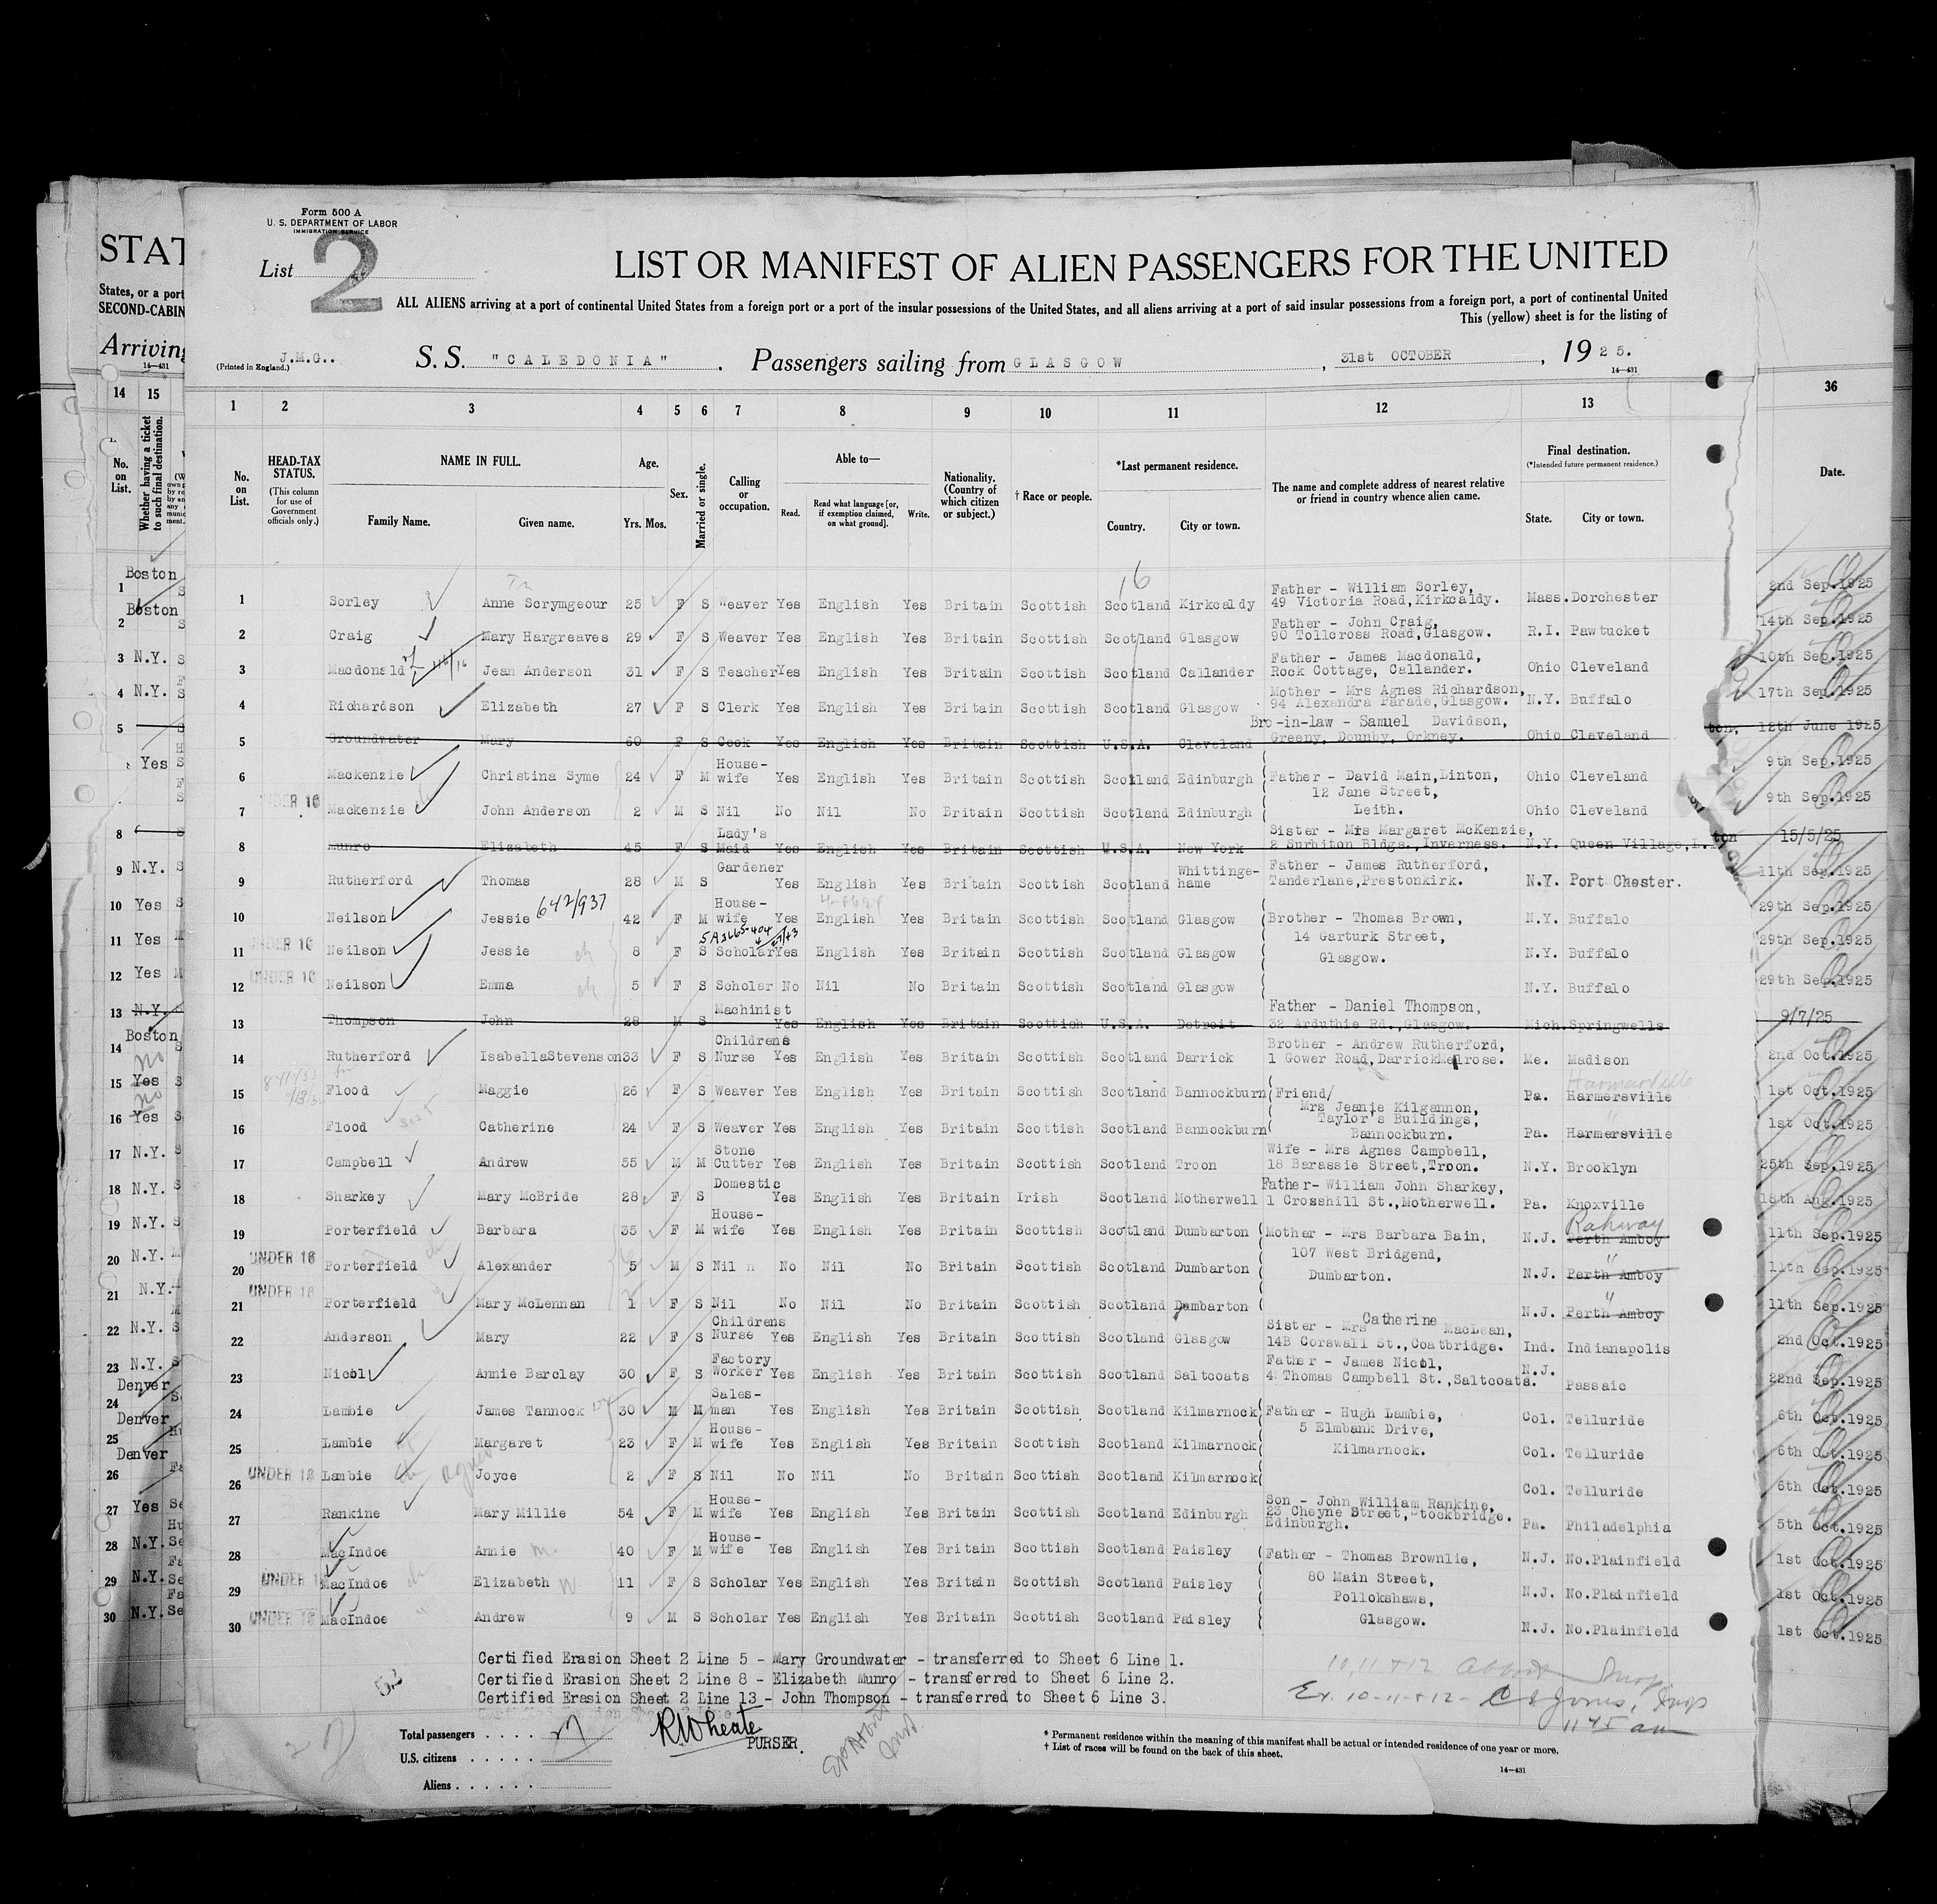 Form 500 A
U. S. DEPARTMENT OF LABOR
IMMIGRATION SERVICE
List 2
LIST OR MANIFEST OF ALIEN PASSENGERS FOR THE UNITED
ALL ALIENS arriving at a port of continental United States from a foreign port or a port of the insular possessions of the United States, and all aliens arriving at a port of said insular possessions from a foreign port, a port of continental United
This (yellow) sheet is for the listing of
(Printed in England.) J.M.G.. S. S. "CALEDONIA". Passengers sailing from GLASGOW, 31st OCTOBER, 1925.
14—431
STAT
States, or a port
SECOND-CABIN
Arriving
14—431
14 15
No. on List.
Whether having a ticket to such final destination.
36
Date.
1 2 3 4 5 6 7 8 9 10 11 12 13
No. on List.
HEAD-TAX STATUS.
(This column for use of Government officials only.)
NAME IN FULL.
Family Name. Given name.
Age.
Yrs. Mos.
Sex.
Married or single.
Calling or occupation.
Able to—
Read. Read what language [or, if exemption claimed, on what ground]. Write.
Nationality. (Country of which citizen or subject.)
† Race or people.
*Last permanent residence.
Country. City or town.
The name and complete address of nearest relative or friend in country whence alien came.
Final destination.
(*Intended future permanent residence.)
State. City or town.
16
1 Sorley Anne Scrymgeour 25 F S Weaver Yes English Yes Britain Scottish Scotland Kirkcaldy Father - William Sorley, 49 Victoria Road,Kirkcaldy. Mass. Dorchester 2nd Sep.1925
2 Craig Mary Hargreaves 29 F S Weaver Yes English Yes Britain Scottish Scotland Glasgow Father - John Craig, 90 Tollcross Road,Glasgow. R.I. Pawtucket 14th Sep.1925
3 Macdonald Jean Anderson 31 F S Teacher Yes English Yes Britain Scottish Scotland Callander Father - James Macdonald, Rock Cottage, Callander. Ohio Cleveland 10th Sep.1925
4 Richardson Elizabeth 27 F S Clerk Yes English Yes Britain Scottish Scotland Glasgow Mother - Mrs Agnes Richardson, 94 Alexandra Parade,Glasgow. N.Y. Buffalo 17th Sep.1925
5 Groundwater Mary 60 F S Cook Yes English Yes Britain Scottish U.S.A. Cleveland Bro-in-law - Samuel Davidson, Greeny, Dounby, Orkney. Ohio Cleveland 12th June 1925
6 Mackenzie Christina Syme 24 F M House-wife Yes English Yes Britain Scottish Scotland Edinburgh Father - David Main,Linton, Ohio Cleveland 9th Sep.1925
12 Jane Street,
UNDER 16 7 Mackenzie John Anderson 2 M S Nil No Nil No Britain Scottish Scotland Edinburgh Leith. Ohio Cleveland 9th Sep.1925
8 Munro Elizabeth 45 F S Lady's Maid Yes English Yes Britain Scottish U.S.A. New York Sister - Mrs Margaret McKenzie, 2 Surbiton Bldgs.,Inverness. N.Y. Queen Village,L. 15/5/25
9 Rutherford Thomas 28 M S Gardener Yes English Yes Britain Scottish Scotland Whittinge-hame Father - James Rutherford, Tanderlane,Prestonkirk. N.Y. Port Chester. 11th Sep.1925
10 Neilson Jessie 642/937 42 F M House-wife Yes English Yes Britain Scottish Scotland Glasgow Brother - Thomas Brown, N.Y. Buffalo 29th Sep.1925
14 Garturk Street,
UNDER 16 11 Neilson Jessie 8 F S Scholar Yes English Yes Britain Scottish Scotland Glasgow Glasgow. N.Y. Buffalo 29th Sep.1925
UNDER 16 12 Neilson Emma 5 F S Scholar No Nil No Britain Scottish Scotland Glasgow N.Y. Buffalo 29th Sep.1925
13 Thompson John 28 M S Machinist Yes English Yes Britain Scottish U.S.A. Detroit Father - Daniel Thompson, 32 Arduthie Rd.,Glasgow. Mich. Springwells 9/7/25
14 Rutherford IsabellaStevenson 33 F S Childrens Nurse Yes English Yes Britain Scottish Scotland Darrick Brother - Andrew Rutherford, 1 Gower Road,DarrickMelrose. Me. Madison 2nd Oct.1925
15 Flood Maggie 26 F S Weaver Yes English Yes Britain Scottish Scotland Bannockburn Friend/ Mrs Jeanie Kilgannon, Pa. Harmersville Harmarville 1st Oct.1925
16 Flood Catherine 24 F S Weaver Yes English Yes Britain Scottish Scotland Bannockburn Taylor's Buildings, Bannockburn. Pa. Harmersville 1st Oct.1925
17 Campbell Andrew 55 M M Stone Cutter Yes English Yes Britain Scottish Scotland Troon Wife - Mrs Agnes Campbell, 18 Barassie Street,Troon. N.Y. Brooklyn 25th Sep.1925
18 Sharkey Mary McBride 28 F S Domestic Yes English Yes Britain Irish Scotland Motherwell Father- William John Sharkey, 1 Crosshill St.,Motherwell. Pa. Knoxville 18th Aug.1925
19 Porterfield Barbara 35 F M House-wife Yes English Yes Britain Scottish Scotland Dumbarton Mother - Mrs Barbara Bain, N.J. Perth Amboy Rahway 11th Sep.1925
107 West Bridgend,
UNDER 16 20 Porterfield Alexander 5 M S Nil No Nil No Britain Scottish Scotland Dumbarton Dumbarton. N.J. Perth Amboy " 11th Sep.1925
UNDER 16 21 Porterfield Mary McLennan 1 F S Nil No Nil No Britain Scottish Scotland Dumbarton N.J. Perth Amboy " 11th Sep.1925
22 Anderson Mary 22 F S Childrens Nurse Yes English Yes Britain Scottish Scotland Glasgow Sister - Mrs Catherine MacLean, 14B Corswall St.,Coatbridge. Ind. Indianapolis 2nd Oct.1925
23 Nicol Annie Barclay 30 F S Factory Worker Yes English Yes Britain Scottish Scotland Saltcoats Father - James Nicol, 4 Thomas Campbell St.,Saltcoats. N.J. Passaic 22nd Sep.1925
24 Lambie James Tannock 30 M M Sales-man Yes English Yes Britain Scottish Scotland Kilmarnock Father - Hugh Lambie, Col. Telluride 6th Oct.1925
5 Elmbank Drive,
25 Lambie Margaret 23 F M House-wife Yes English Yes Britain Scottish Scotland Kilmarnock Kilmarnock. Col. Telluride 6th Oct.1925
UNDER 16 26 Lambie Joyce 2 F S Nil No Nil No Britain Scottish Scotland Kilmarnock Col. Telluride 6th Oct.1925
27 Rankine Mary Millie 54 F M House-wife Yes English Yes Britain Scottish Scotland Edinburgh Son - John William Rankine, 23 Cheyne Street,Stockbridge. Edinburgh. Pa. Philadelphia 5th Oct.1925
28 MacIndoe Annie M. 40 F M House-wife Yes English Yes Britain Scottish Scotland Paisley Father - Thomas Brownlie, N.J. No.Plainfield 1st Oct.1925
80 Main Street,
UNDER 16 29 MacIndoe Elizabeth 11 F S Scholar Yes English Yes Britain Scottish Scotland Paisley Pollokshaws, N.J. No.Plainfield 1st Oct.1925
UNDER 16 30 MacIndoe Andrew 9 M S Scholar Yes English Yes Britain Scottish Scotland Paisley Glasgow. N.J. No.Plainfield 1st Oct.1925
Certified Erasion Sheet 2 Line 5 - Mary Groundwater - transferred to Sheet 6 Line 1.
Certified Erasion Sheet 2 Line 8 - Elizabeth Munro - transferred to Sheet 6 Line 2.
Certified Erasion Sheet 2 Line 13 - John Thompson - transferred to Sheet 6 Line 3.
Total passengers
U.S. citizens
Aliens
PURSER.
* Permanent residence within the meaning of this manifest shall be actual or intended residence of one year or more.
† List of races will be found on the back of this sheet.
14—431